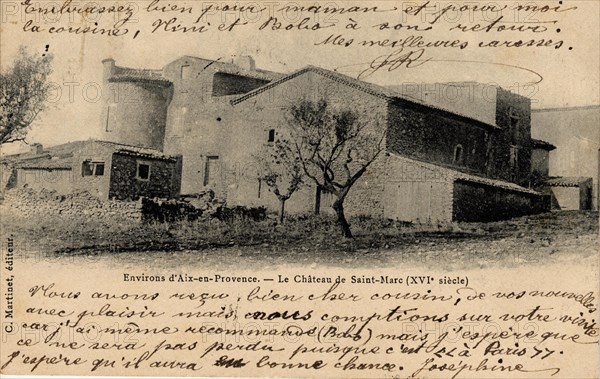 Embrassez bien pour maman et pour moi
la cousine, Nini et Bobo à son retour.
Mes meilleures caresses.
C. Martinet, éditeur.
Environs d'Aix-en-Provence. — Le Château de Saint-Marc (XVIe siècle)
Nous avons reçu, bien cher cousin, de vos nouvelles
avec plaisir mais, nous comptions sur votre visite
car j'ai même recommandé (Bobo) mais j'espère que
ce ne sera pas perdu puisque c'est à Paris
j'espère qu'il aura bonne chance. Joséphine